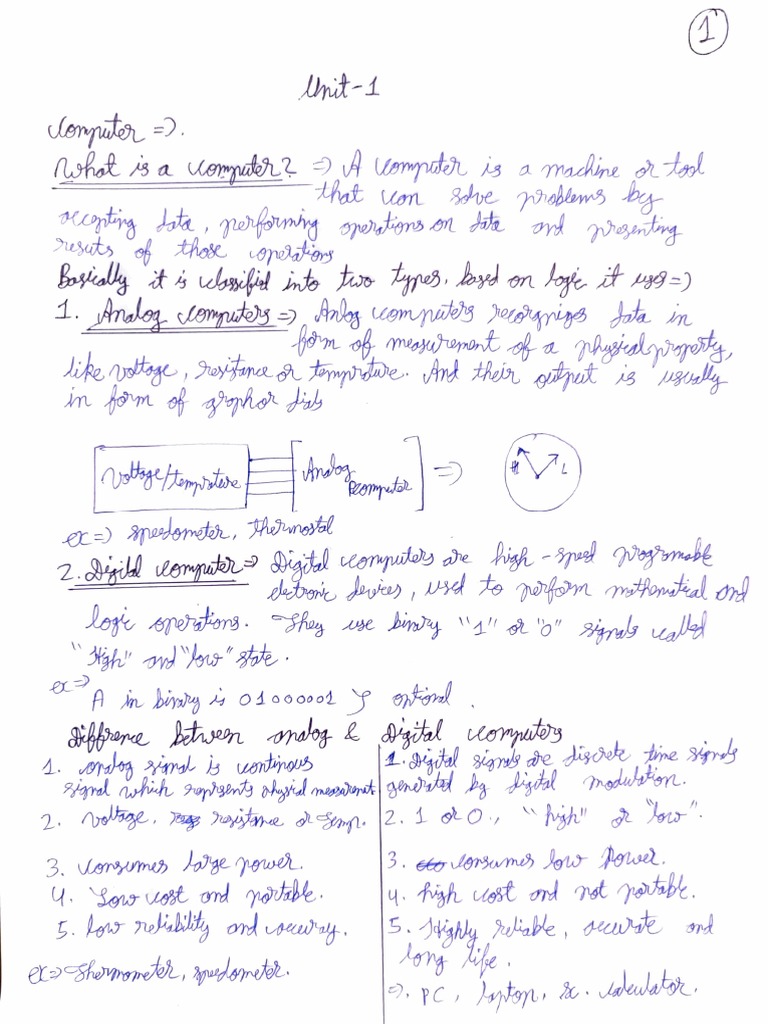 1
Unit-1
Computer =>.
What is a computer? => A computer is a machine or tool
that can solve problems by
accepting data, performing operations on data and presenting
resuts of those operations
Basically it is classified into two types, based on logic it uses=>
1. Analog computers => Anlog computers recorgnizes data in
form of measurement of a physical property,
like voltage, resistance or temprature. And their output is usually
in form of graph or dials
Voltage/temprature
Analog
computer
=>
H L
ex=> speedometer, thermostat
2. Digital computer => Digital computers are high-speed programable
electronic devices, used to perform mathematical and
logic operations. They use binary "1" or "0" signals called
"High" and "low" state.
ex=>
A in binary is 01000001 } optional.
Diffrence between analog & Digital computers
1. analog signal is continous
signal which represents physical measurement.
2. voltage, resistance or temp.
3. consumes large power.
4. Low cost and portable.
5. low reliability and accuracy.
ex=> Thermometer, speedometer.
1. Digital signals are discrete time signals
generated by digital modulation.
2. 1 or 0., "high" or "low".
3. consumes low Power.
4. high cost and not portable.
5. Highly reliable, accurate and
long life.
=>. PC, laptop, sc. calculator.